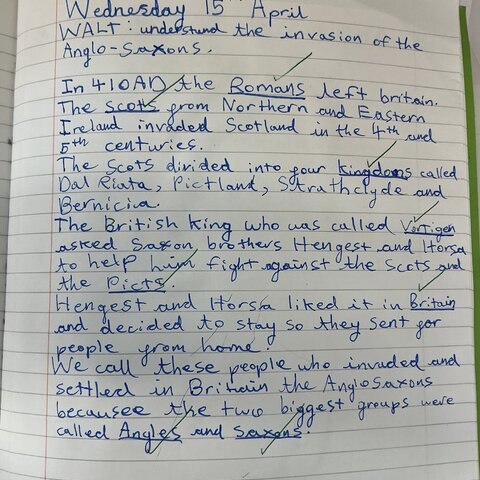 Wednesday 15th April
WALT: understand the invasion of the
Anglo-Saxons.
In 410AD the Romans left britain.
The scots from Northern and Eastern
Ireland invaded Scotland in the 4th and
5th centuries.
The Scots divided into four kingdoms called
Dal Riata, Pictland, Strathclyde and
Bernicia.
The British king who was called Vortigen
asked Saxon brothers Hengest and Horsa
to help him fight against the Scots and
the Picts.
Hengest and Horsa liked it in Britain
and decided to stay so they sent for
people from home.
We call these people who invaded and
settled in Britain the Anglosaxons
becausee the two biggest groups were
called Angles and Saxons.